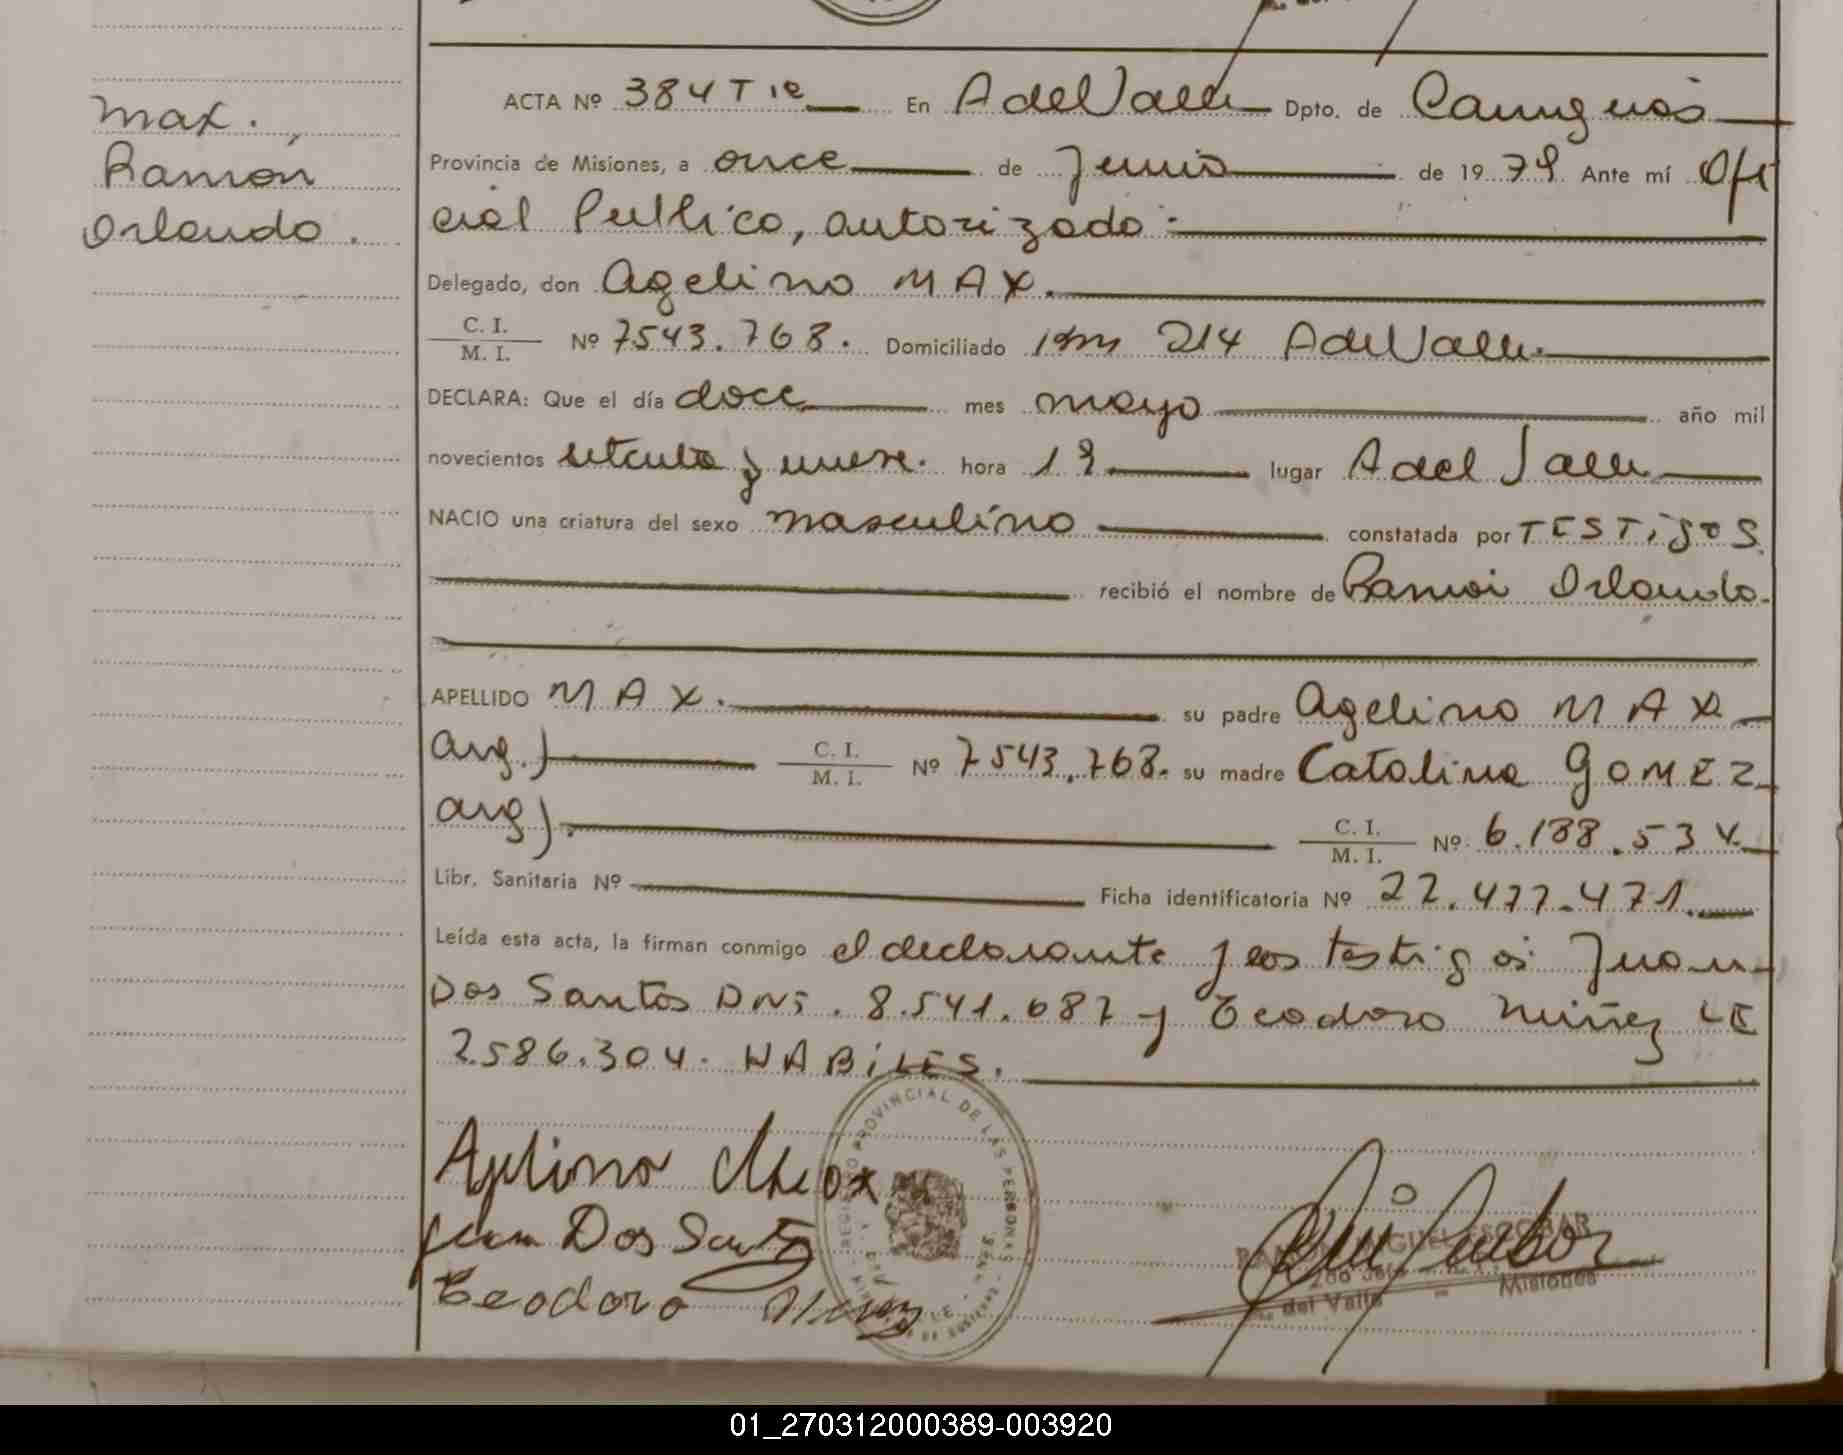 Max.,
Ramón
Orlando.
ACTA Nº 384 T 1º En A del Valle Dpto. de Cainguás
Provincia de Misiones, a once de Junio de 1979 Ante mí Ofi
cial Publico, autorizado:
Delegado, don Agelino MAX.
C. I. / M. I. Nº 7543.768. Domiciliado Km 214 A del Valle.
DECLARA: Que el día doce mes mayo año mil
novecientos setenta y nueve. hora 19 lugar A del Valle
NACIO una criatura del sexo masculino constatada por TESTigos.
recibió el nombre de Ramón Orlando.
APELLIDO MAX. su padre Agelino MAX
arg.) C. I. / M. I. Nº 7543.768. su madre Catalina GOMEZ
arg). C. I. / M. I. Nº 6.188.534.
Libr. Sanitaria Nº Ficha identificatoria Nº 22.477.471.
Leída esta acta, la firman conmigo el declarante y los testigos Juan
Dos Santos DNi. 8.541.687 y Teodoro Núñez LE
2586.304. HABiLES.
REGISTRO PROVINCIAL DE LAS PERSONAS
Agelino Max
Juan Dos Santos
Teodoro Núñez
RAMON MIGUEL ESCOBAR
del Valle - Misiones
01_270312000389-003920